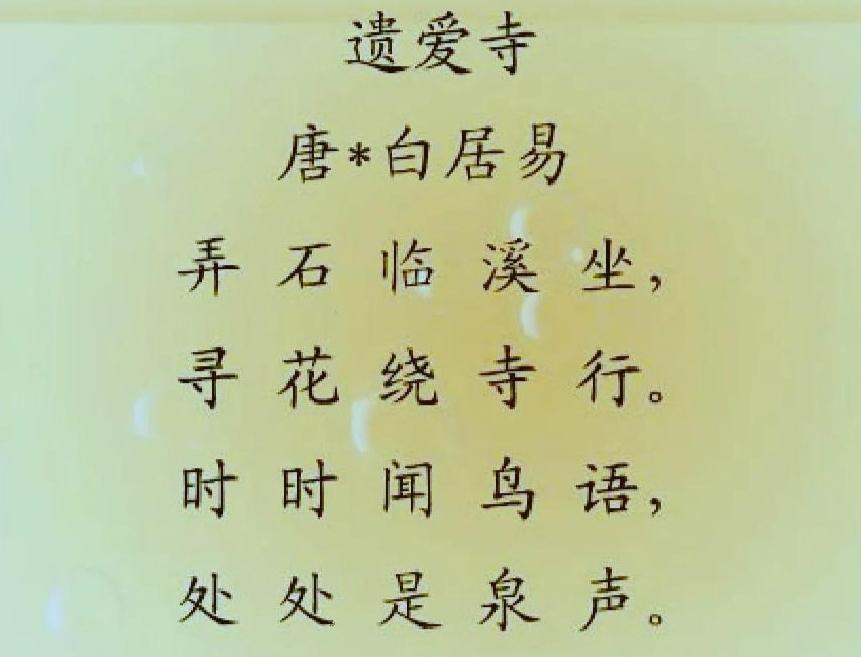 遗爱寺
唐*白居易
弄石临溪坐，
寻花绕寺行。
时时闻鸟语，
处处是泉声。